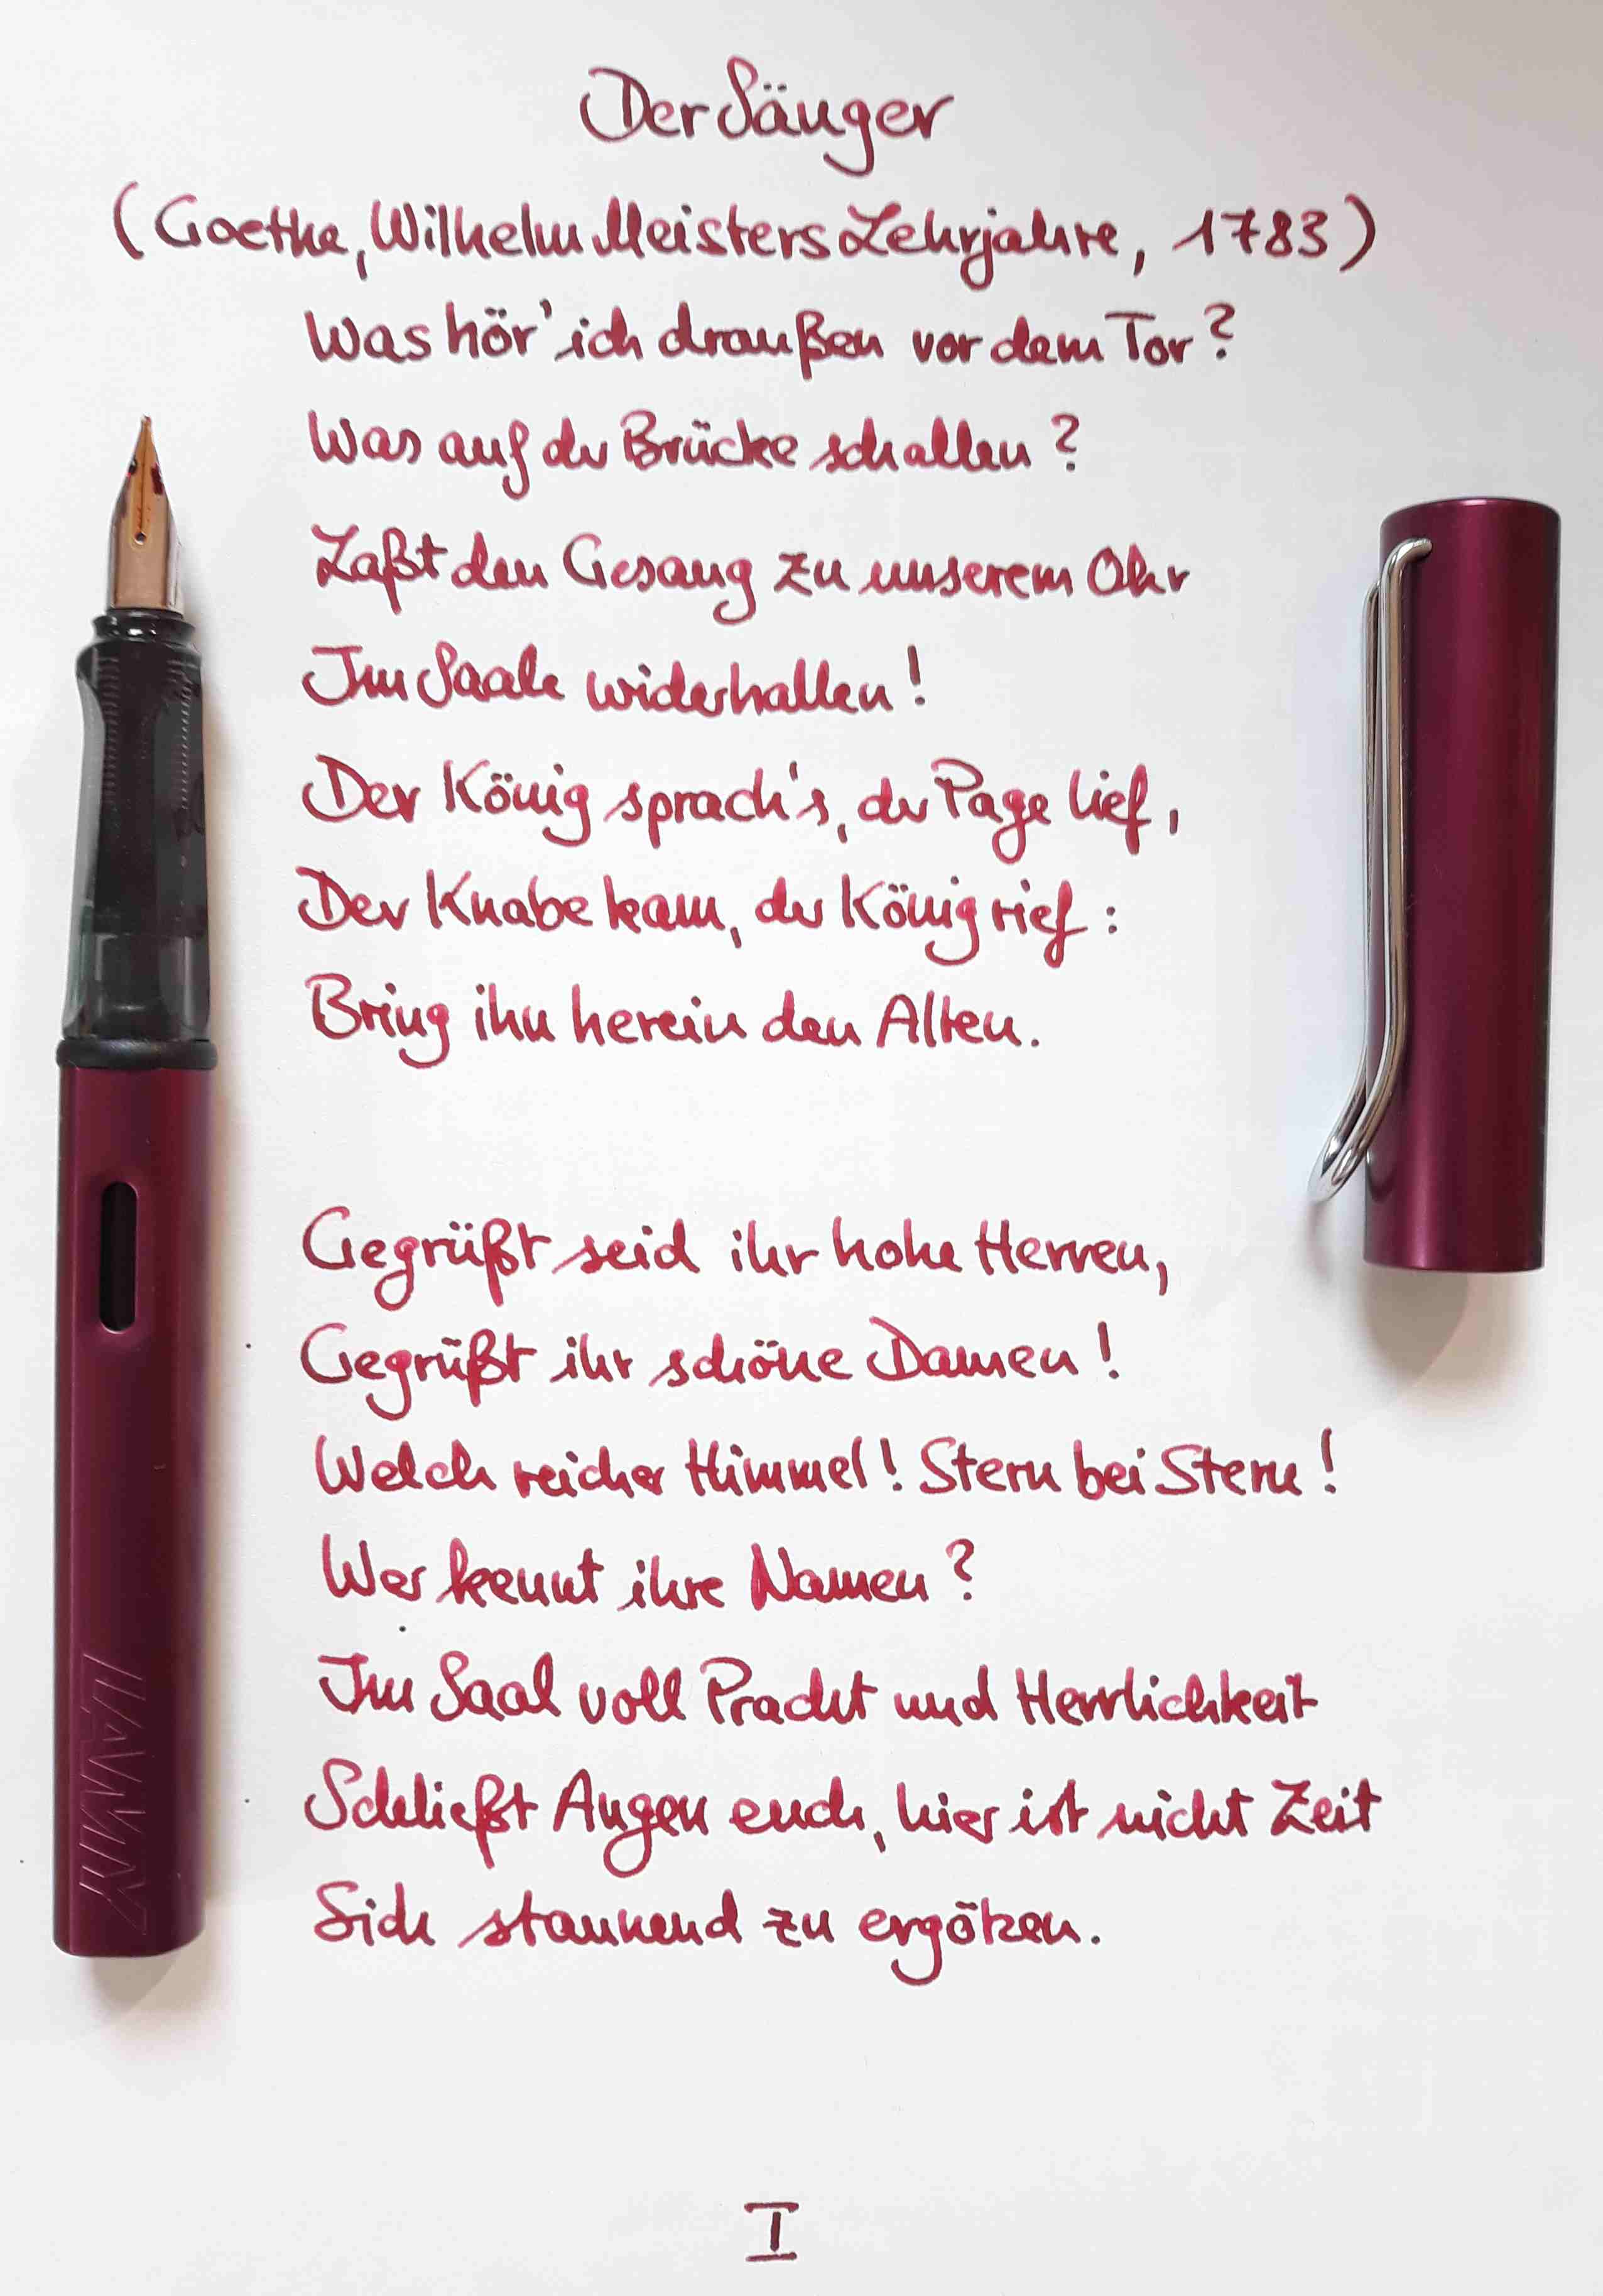 Der Sänger
(Goethe, Wilhelm Meisters Lehrjahre, 1783)
Was hör' ich draußen vor dem Tor?
Was auf der Brücke schallen?
Laßt den Gesang zu unserem Ohr
Im Saale widerhallen!
Der König sprach's, der Page lief,
Der Knabe kam, der König rief:
Bring ihn herein den Alten.
Gegrüßt seid ihr hohe Herren,
Gegrüßt ihr schöne Damen!
Welch reicher Himmel! Stern bei Stern!
Wer kennt ihre Namen?
Im Saal voll Pracht und Herrlichkeit
Schließt Augen euch, hier ist nicht Zeit
Sich staunend zu ergötzen.
I
LAMY